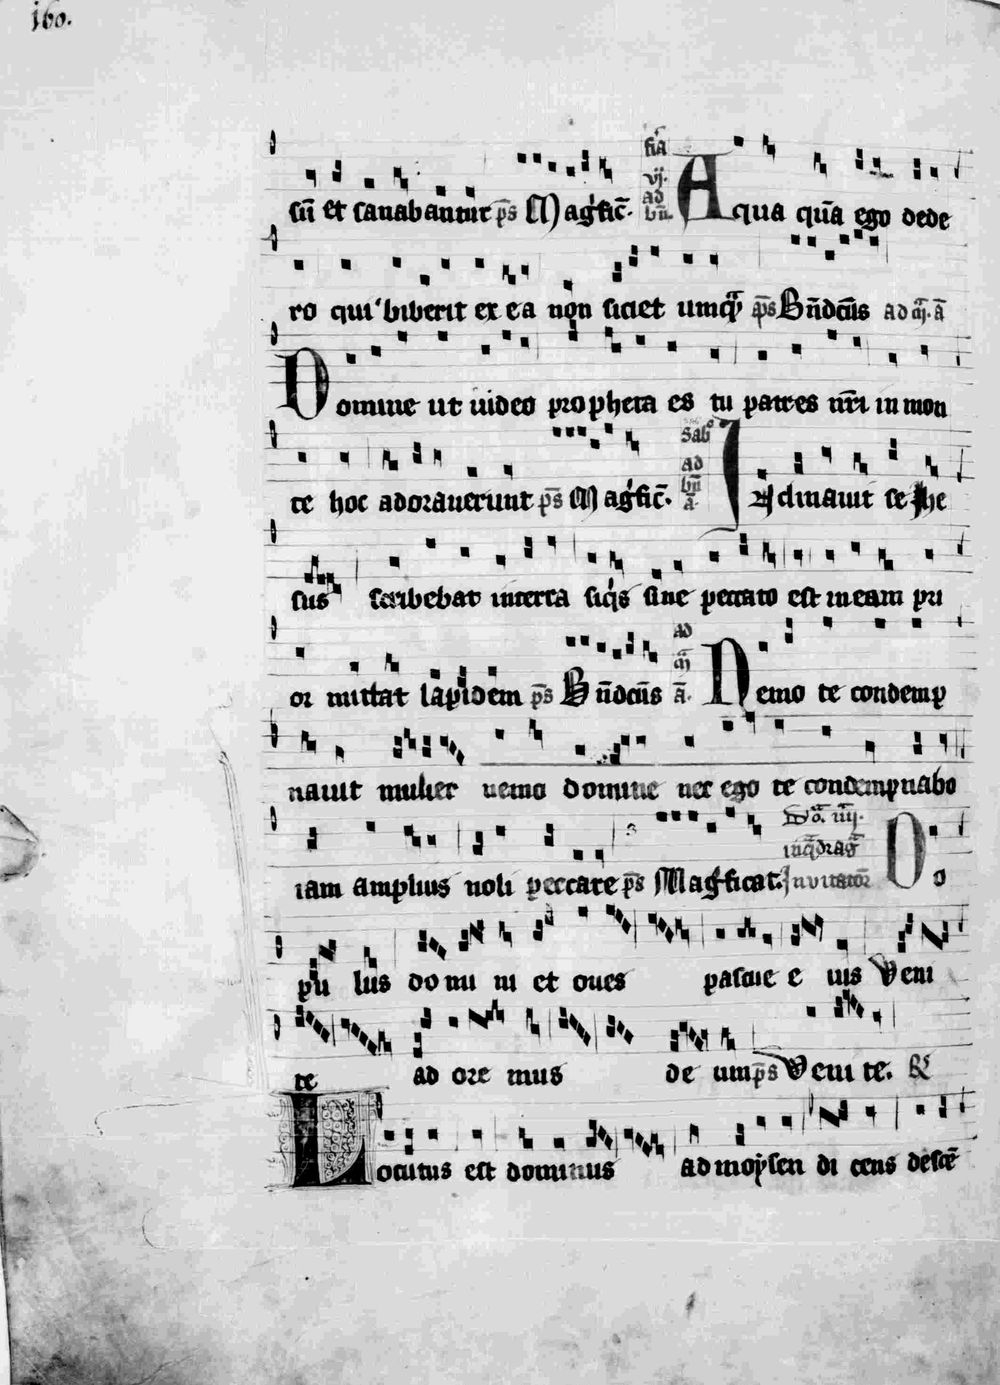 160.
sū et sanabantur p̄s Magn̄fic̄. fīa vj. ad bn̄. Aqua qūa ego dede
ro qui biberit ex ea non siciet umq̄ p̄s Bn̄dc̄us ad m̄. ā
Domine ut uideo propheta es tu patres nr̄i in mon
te hoc adorauerunt p̄s Magn̄fic̄. Sabō ad bn̄ ā Inclinauit se ihe
sus scribebat in terra siq̄s sine peccato est in eam pri
or mittat lapidem p̄s Bn̄dc̄us ad m̄ ā. Nemo te condemp
nauit mulier nemo domine nec ego te condempnabo
iam amplius noli peccare p̄s Magn̄ficat. Dōa. iiij. in q̄draḡ Inuitator̄ Po
pu lus do mi ni et oues pascue e ius Veni
te ad ore mus de um p̄s Veni te. ℟
Locutus est dominus ad moysen di cens desce̅